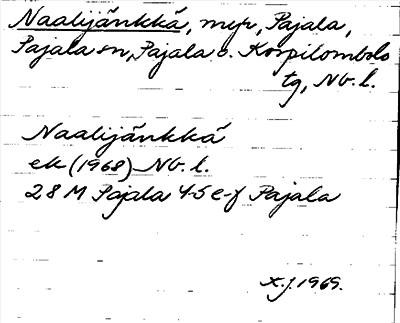 Naalijänkkä, myr, Pajala,
Pajala sn, Pajala o. Korpilombolo
tg, Nb. l.
Naalijänkkä
ek (1968) Nb. l.
28 M Pajala 4-5 e-f Pajala
X.J. 1969.